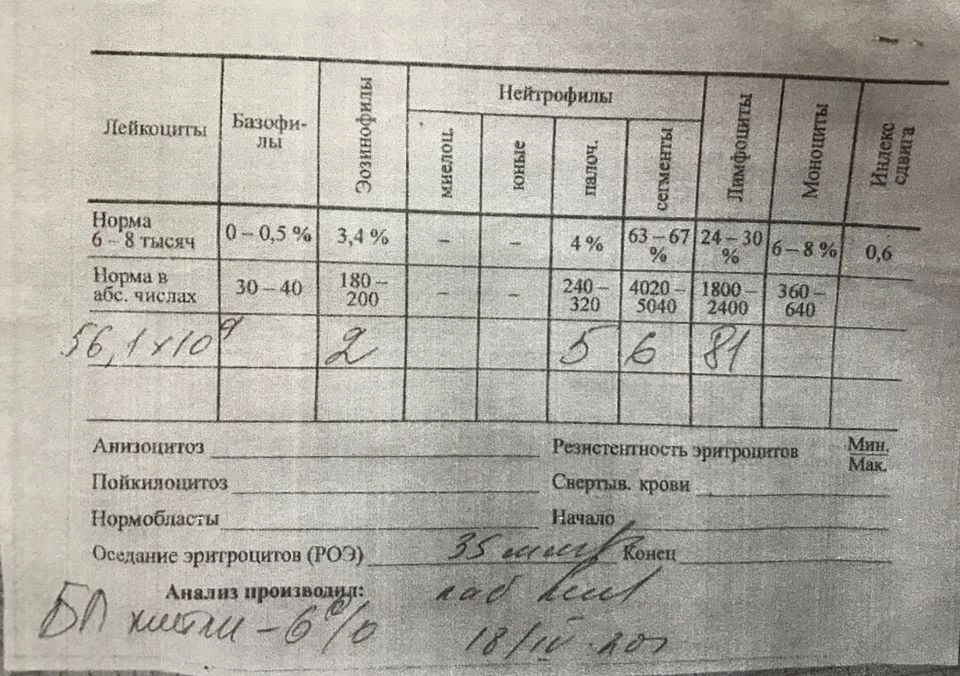 Лейкоциты Базофи- лы Эозинофилы Нейтрофилы Лимфоциты Моноциты Индекс сдвига
миелоц. юные палоч. сегменты
Норма 6 – 8 тысяч 0 – 0,5 % 3,4 % – – 4 % 63 – 67 % 24 – 30 % 6 – 8 % 0,6
Норма в абс. числах 30 – 40 180 – 200 – – 240 – 320 4020 – 5040 1800 – 2400 360 – 640
56,1 x 10⁹ 2 5 6 81
Анизоцитоз Резистентность эритроцитов Мин. Мак.
Пойкилоцитоз Свертыв. крови
Нормобласты Начало
Оседание эритроцитов (РОЭ) 35 мм/ Конец
Анализ производил: лаб
БГ – 6 %
18/IV